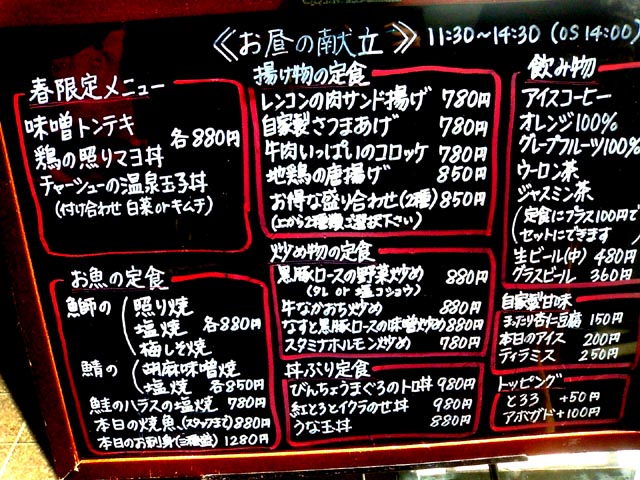 《お昼の献立》 11:30〜14:30 (OS 14:00)
春限定メニュー
味噌トンテキ
鶏の照りマヨ丼
各880円
チャーシューの温泉玉子丼
(付け合わせ 白菜 or キムチ)
お魚の定食
鰤の
照り焼
塩焼
梅しそ焼
各880円
鯖の
胡麻味噌焼
塩焼
各850円
鮭のハラスの塩焼 780円
本日の焼魚(スタッフまで)880円
本日のお刺身(三種盛) 1280円
揚げ物の定食
レンコンの肉サンド揚げ 780円
自家製さつまあげ 780円
牛肉いっぱいのコロッケ 780円
地鶏の唐揚げ 850円
お得な盛り合わせ(2種) 850円
(上から2種類ご選択下さい)
炒め物の定食
黒豚ロースの野菜炒め 880円
(タレ or 塩コショウ)
牛なかおち炒め 880円
なすと黒豚ロースの味噌炒め 880円
スタミナホルモン炒め 780円
丼ぶり定食
びんちょうまぐろのトロ丼 980円
紅とろとイクラのせ丼 980円
うな玉丼 880円
飲み物
アイスコーヒー
オレンジ100%
グレープフルーツ100%
ウーロン茶
ジャスミン茶
(定食にプラス100円で
セットにできます)
生ビール(中) 480円
グラスビール 360円
自家製甘味
まったり杏仁豆腐 150円
本日のアイス 200円
ティラミス 250円
トッピング
とろろ +50円
アボガド+100円